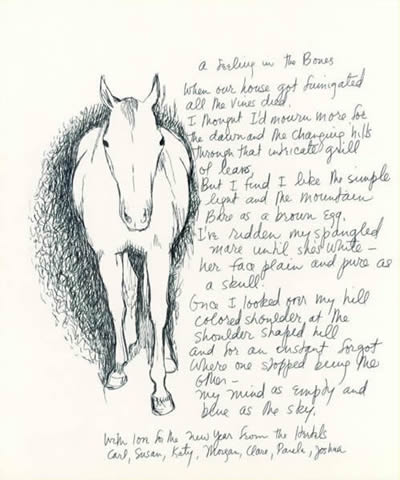 a Feeling in the Bones
When our house got fumigated
all the vines died.
I thought I'd mourn more for
the dawn and the changing hills
through that intricate grill
of leaves,
But I find I like the simple
light and the mountain
Bare as a brown egg.
I've ridden my spangled
mare until she's white –
her face plain and pure as
a skull.
Once I looked over my hill
colored shoulder, at the
shoulder shaped hill
and for an instant forgot
where one stopped being the
other –
my mind as empty and
blue as the sky.
With love for the new year from the
Carl, Susan, Katy, Morgan, Clare, Paula, Joshua